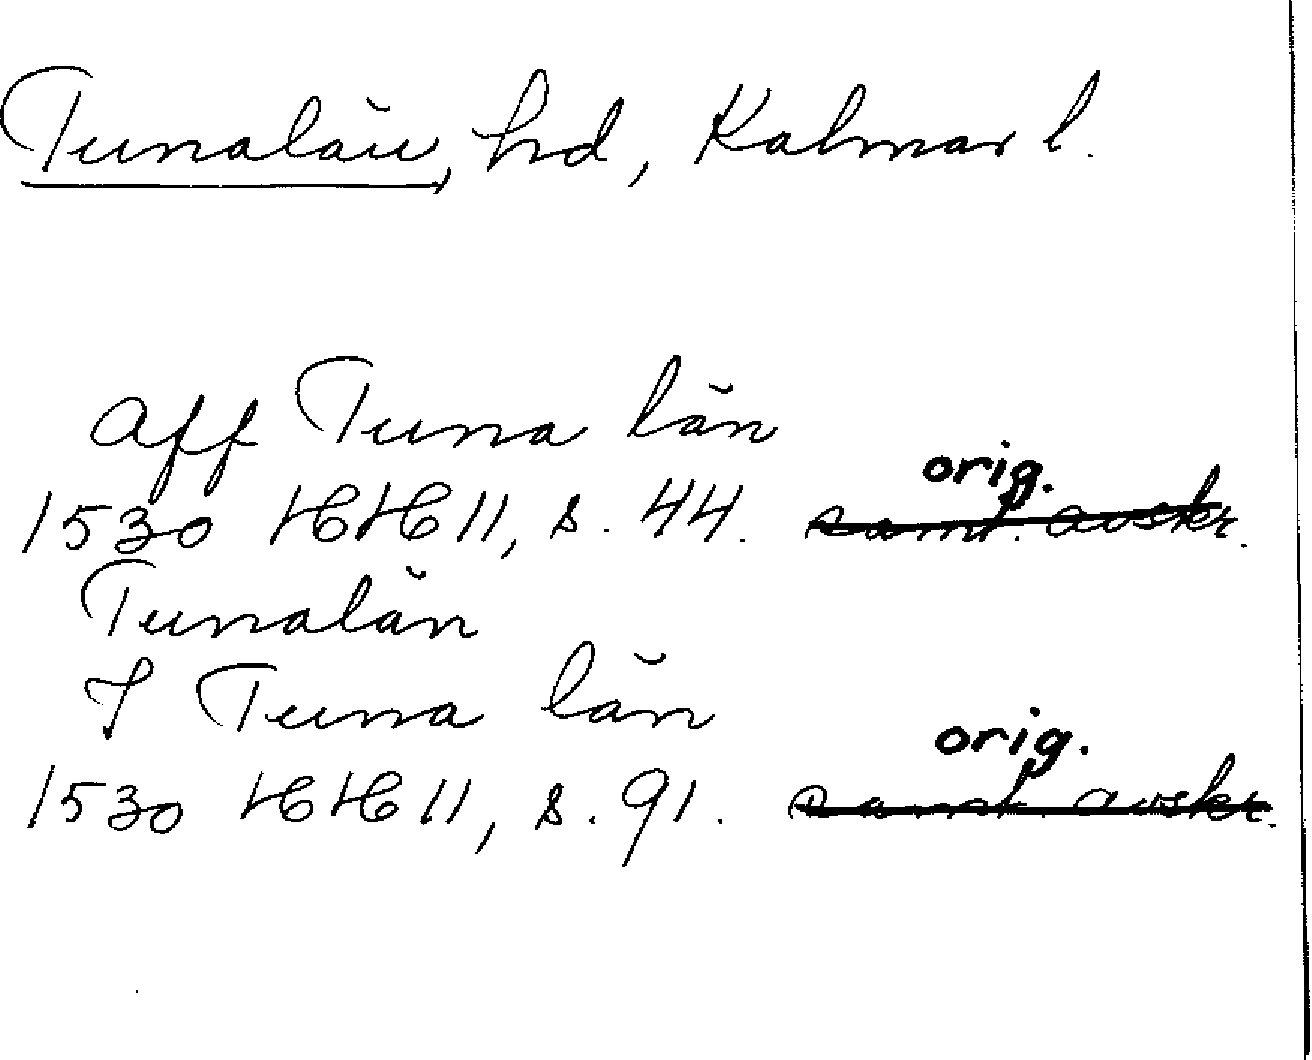 Tunalän, hd, Kalmar l.
Aff Tuna län
orig.
1530 HH 11, s. 44. samt. avskr.
Tunalän
I Tuna län
orig.
1530 HH 11, s. 91. samt. avskr.